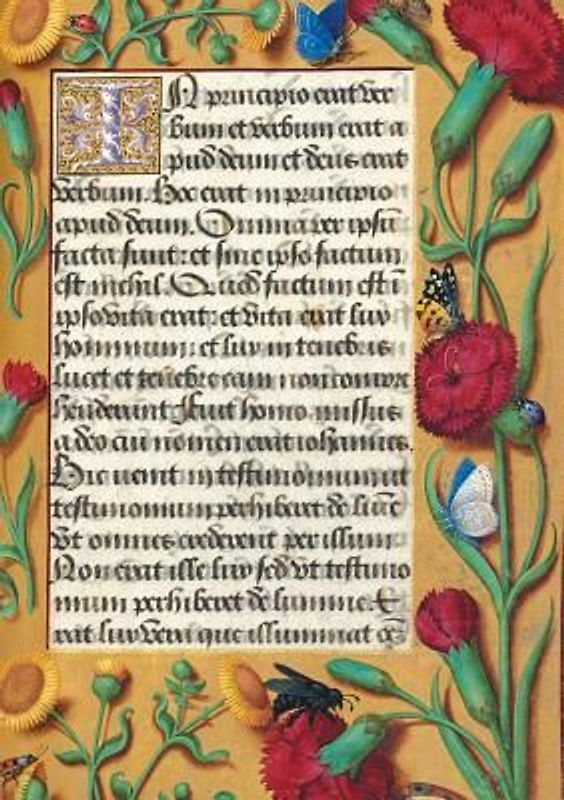 IN principio erat ver
bum et verbum erat a
pud deum et deus erat
verbum. Hoc erat in principio
apud deum. Omnia per ipsū
facta sunt: et sine ipso factum
est nichil. Quod factum est ī
ipso vita erat: et vita erat lux
hominum: et lux in tenebris
lucet et tenebre eam non compre
henderunt. Fuit homo missus
a deo cui nomen erat iohannes.
Hic venit in testimonium ut
testimonium perhiberet de lumīe
vt omnes crederent per illum.
Non erat ille lux sed vt testimo
nium perhiberet de lumine. E
rat lux vera que illuminat oē